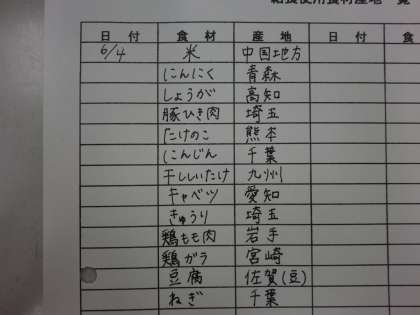 給食使用食材産地一覧
日 付 食 材 産 地 日 付 食
6/4 米 中国地方
にんにく 青森
しょうが 高知
豚ひき肉 埼玉
たけのこ 熊本
にんじん 千葉
干ししいたけ 九州
キャベツ 愛知
きゅうり 埼玉
鶏もも肉 岩手
鶏ガラ 宮崎
豆腐 佐賀(豆)
ねぎ 千葉